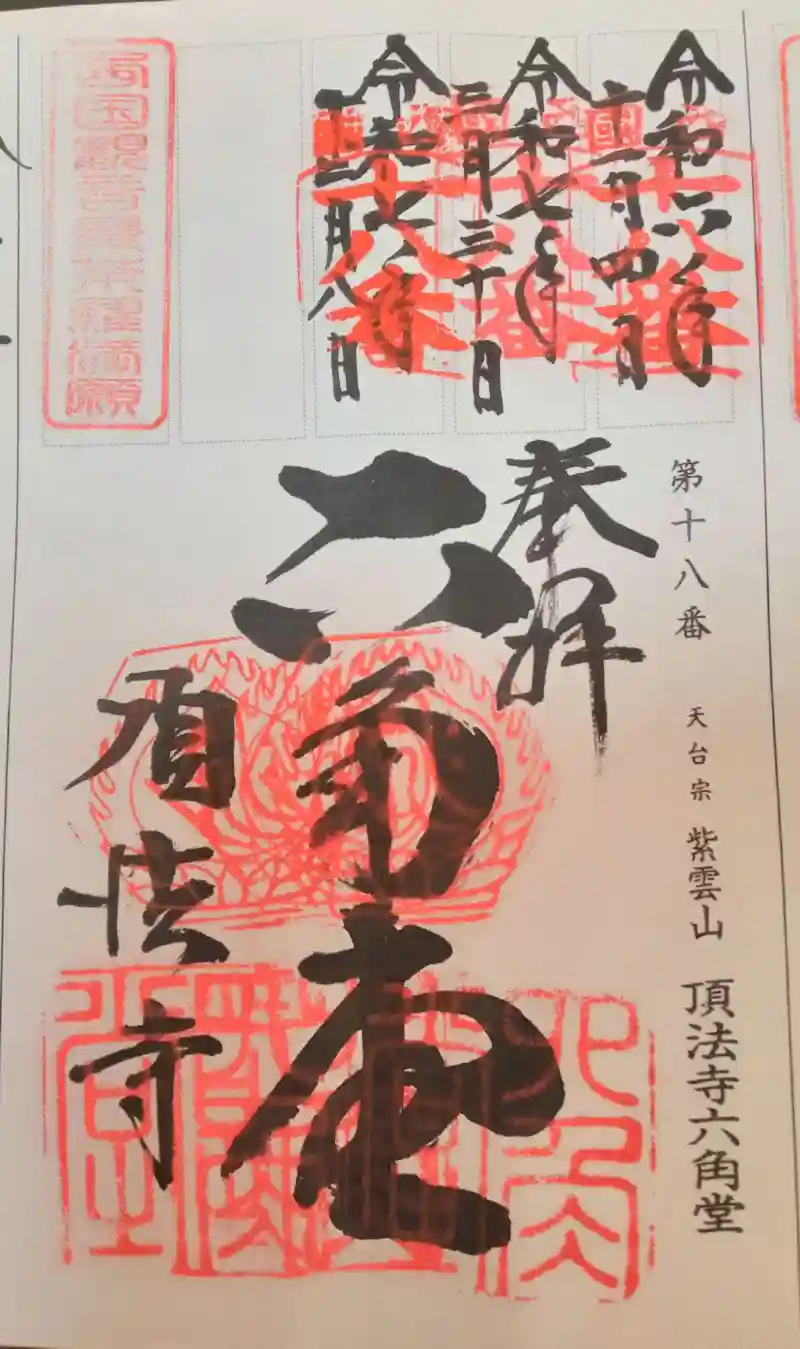 令和六年
月四日
令和七年
三月三十日
令和七年
月八日
十八番
十八番
十八番
西国観音曼荼羅満願
第十八番 天台宗 紫雲山 頂法寺六角堂
奉拝
六角堂
頂法寺